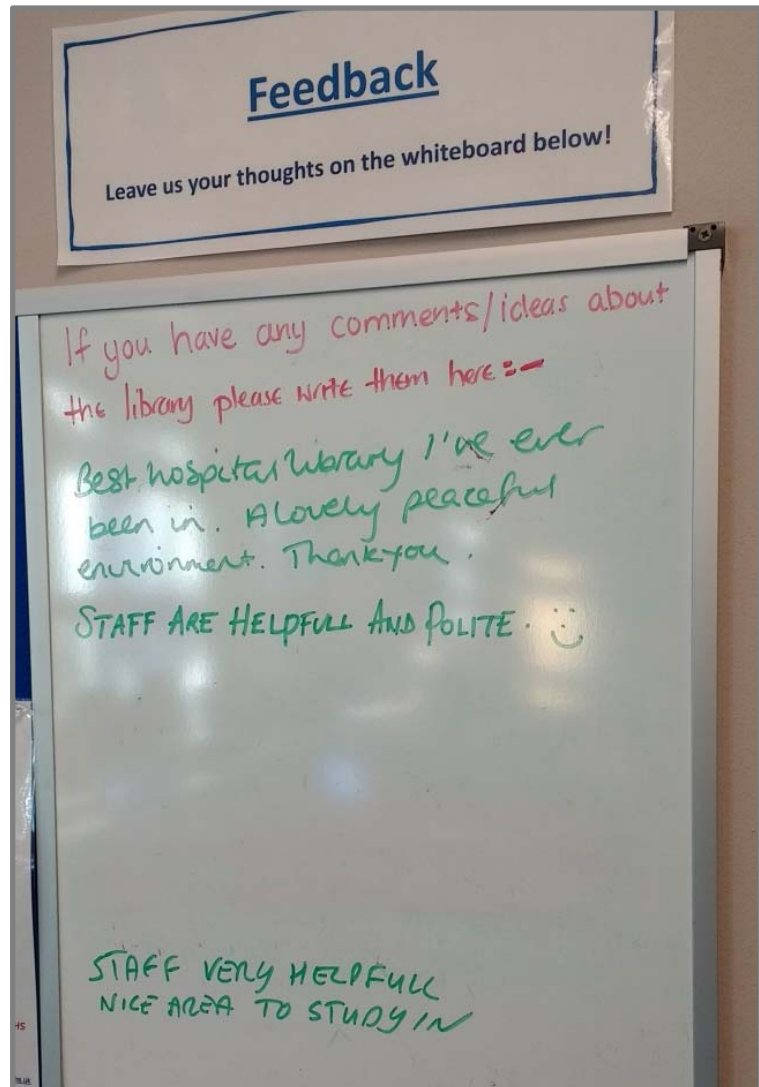 Feedback
Leave us your thoughts on the whiteboard below!
If you have any comments/ideas about
the library please write them here:-
Best hospital library I've ever
been in. A lovely peaceful
environment. Thankyou.
STAFF ARE HELPFULL AND POLITE.
STAFF VERY HELPFULL
NICE AREA TO STUDY IN
HS